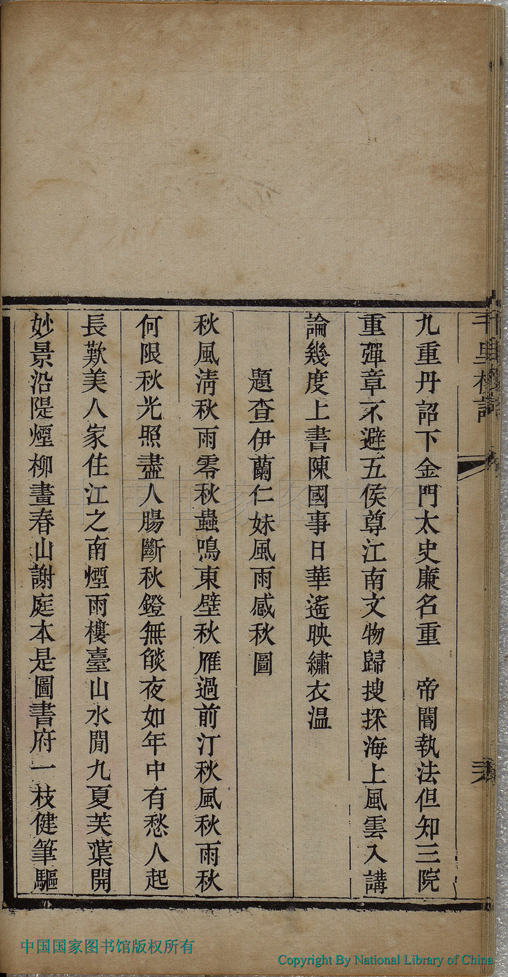 九重丹詔下金門太史廉名重　帝閽執法但知三院
重彈章不避五侯尊江南文物歸搜採海上風雲入講
論幾度上書陳國事日華遙映繡衣溫
題查伊蘭仁妹風雨感秋圖
秋風淸秋雨零秋蟲鳴東壁秋雁過前汀秋風秋雨秋
何限秋光照盡人腸斷秋鐙無燄夜如年中有愁人起
長歎美人家住江之南煙雨樓臺山水閒九夏芙蕖開
妙景沿隄煙柳畫春山謝庭本是圖書府一枝健筆驅
中国国家图书馆版权所有
Copyright By National Library of China